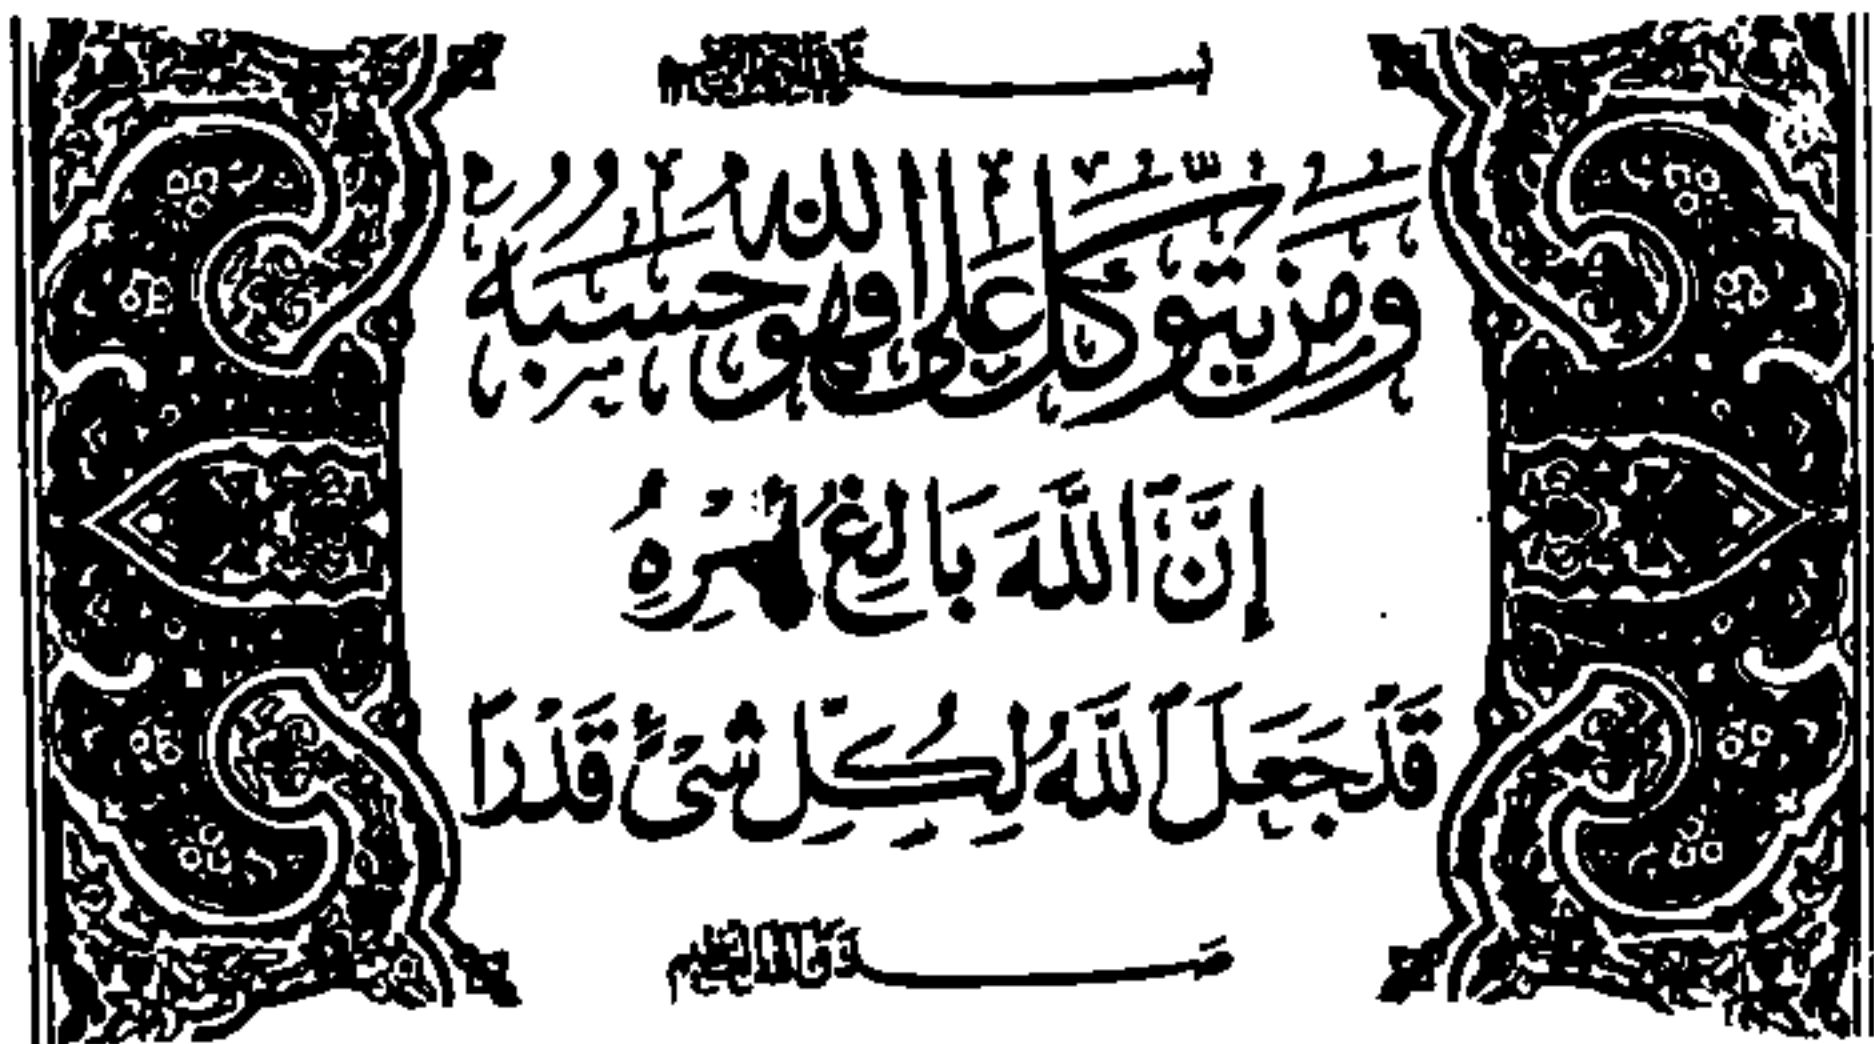 بسم الله الرحمن الرحيم
ومن يتوكل على الله فهو حسبه
إِنَّ اللَّهَ بَالِغُ أَمْرِهِ
قَدْ جَعَلَ اللَّهُ لِكُلِّ شَىْءٍ قَدْرًا
صدق الله العظيم